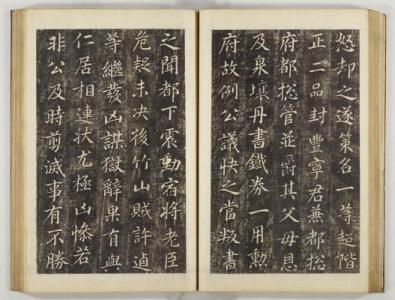 怒却之遂策名一等超階
正二品封豐寧君兼都捴
府都捴管並爵其父母恩
及泉壤丹書鐵券一用勲
府故例公議快之當叛書
之聞都下震動宿將老臣
危疑未决後竹山賊許逌
等繼發凶謀獄辭果有與
仁居相連状尤極凶慘若
非公及時剪滅事有不勝